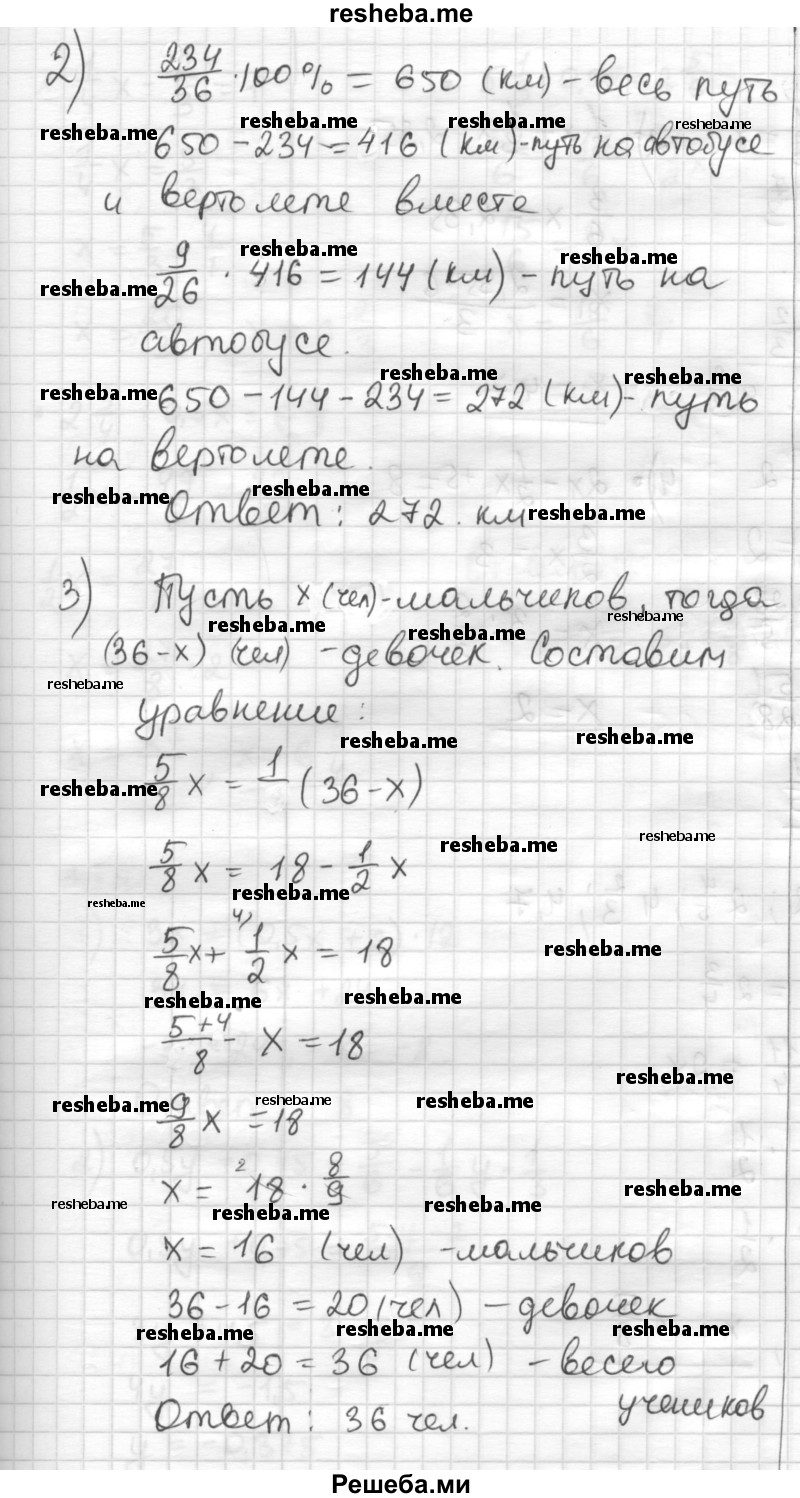 resheba.me
2) 234/36 · 100% = 650 (км) - весь путь
resheba.me resheba.me resheba.me resheba.me
650 - 234 = 416 (км) - путь на автобусе
и вертолете вместе
resheba.me resheba.me
9/26 · 416 = 144 (км) - путь на
resheba.me
автобусе.
resheba.me resheba.me resheba.me
650 - 144 - 234 = 272 (км) - путь
на вертолете.
resheba.me resheba.me
Ответ: 272. км resheba.me
3) Пусть х (чел) - мальчиков, тогда
resheba.me resheba.me resheba.me
(36-х) (чел) - девочек. Составим
resheba.me
уравнение:
resheba.me resheba.me
5/8 х = 1/ (36-х)
resheba.me
resheba.me resheba.me
5/8 х = 18 - 1/2 х
resheba.me resheba.me
4)
5/8 х + 1/2 х = 18 resheba.me
resheba.me resheba.me
5+4/8 - х = 18
resheba.me
resheba.me resheba.me resheba.me
9/8 х = 18
х = 18 · 8/9 resheba.me
2
resheba.me resheba.me resheba.me
х = 16 (чел) - мальчиков
36 - 16 = 20 (чел) - девочек
resheba.me resheba.me resheba.me
16 + 20 = 36 (чел) - весего
учеников
Ответ: 36 чел.
Решеба.ми